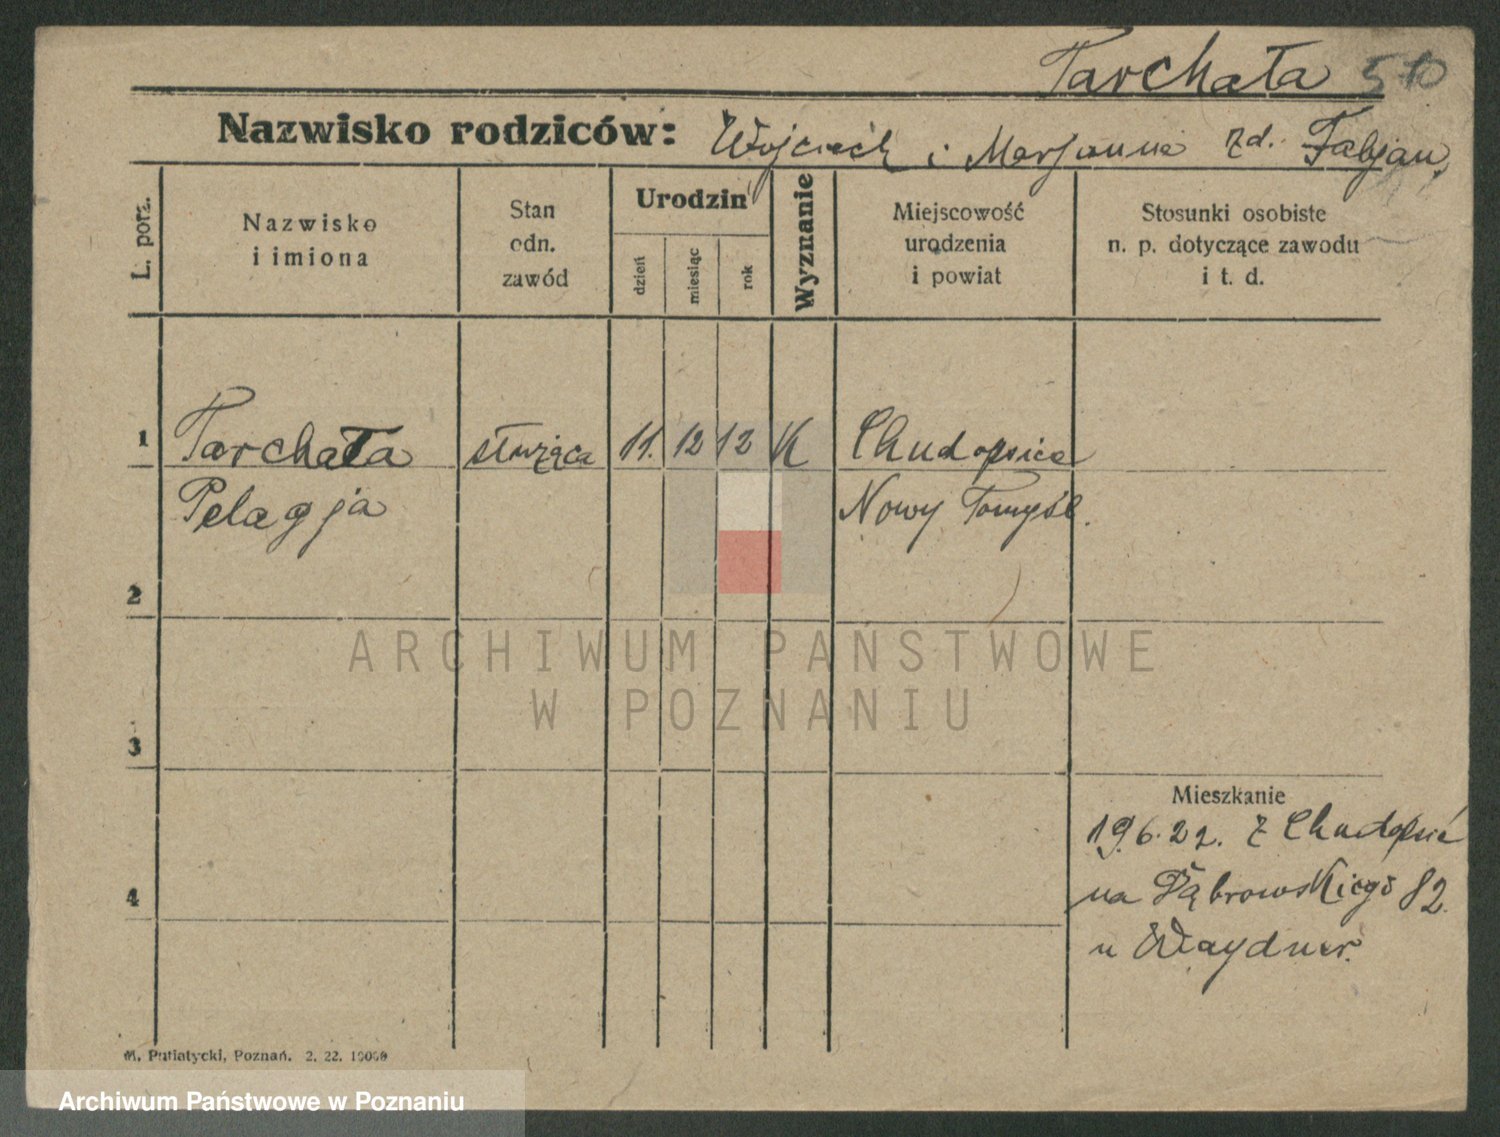 Tarchała 510
Nazwisko rodziców: Wojciech i Marjanna zd. Fabjan.
L. porz.
Nazwisko
i imiona
Stan
odn.
zawód
Urodzin
dzień
miesiąc
rok
Wyznanie
Miejscowość
urodzenia
i powiat
Stosunki osobiste
n. p. dotyczące zawodu
i t. d.
1 Tarchała służąca 11. 12 12 K Chudopsice
Pelagja Nowy Tomyśl.
2
ARCHIWUM PAŃSTWOWE
W POZNANIU
3
Mieszkanie
19.6.22. z Chudopsic
4 na Dąbrowskiego 82.
u Waydner.
M. Putiatycki, Poznań. 2. 22. 10000
Archiwum Państwowe w Poznaniu